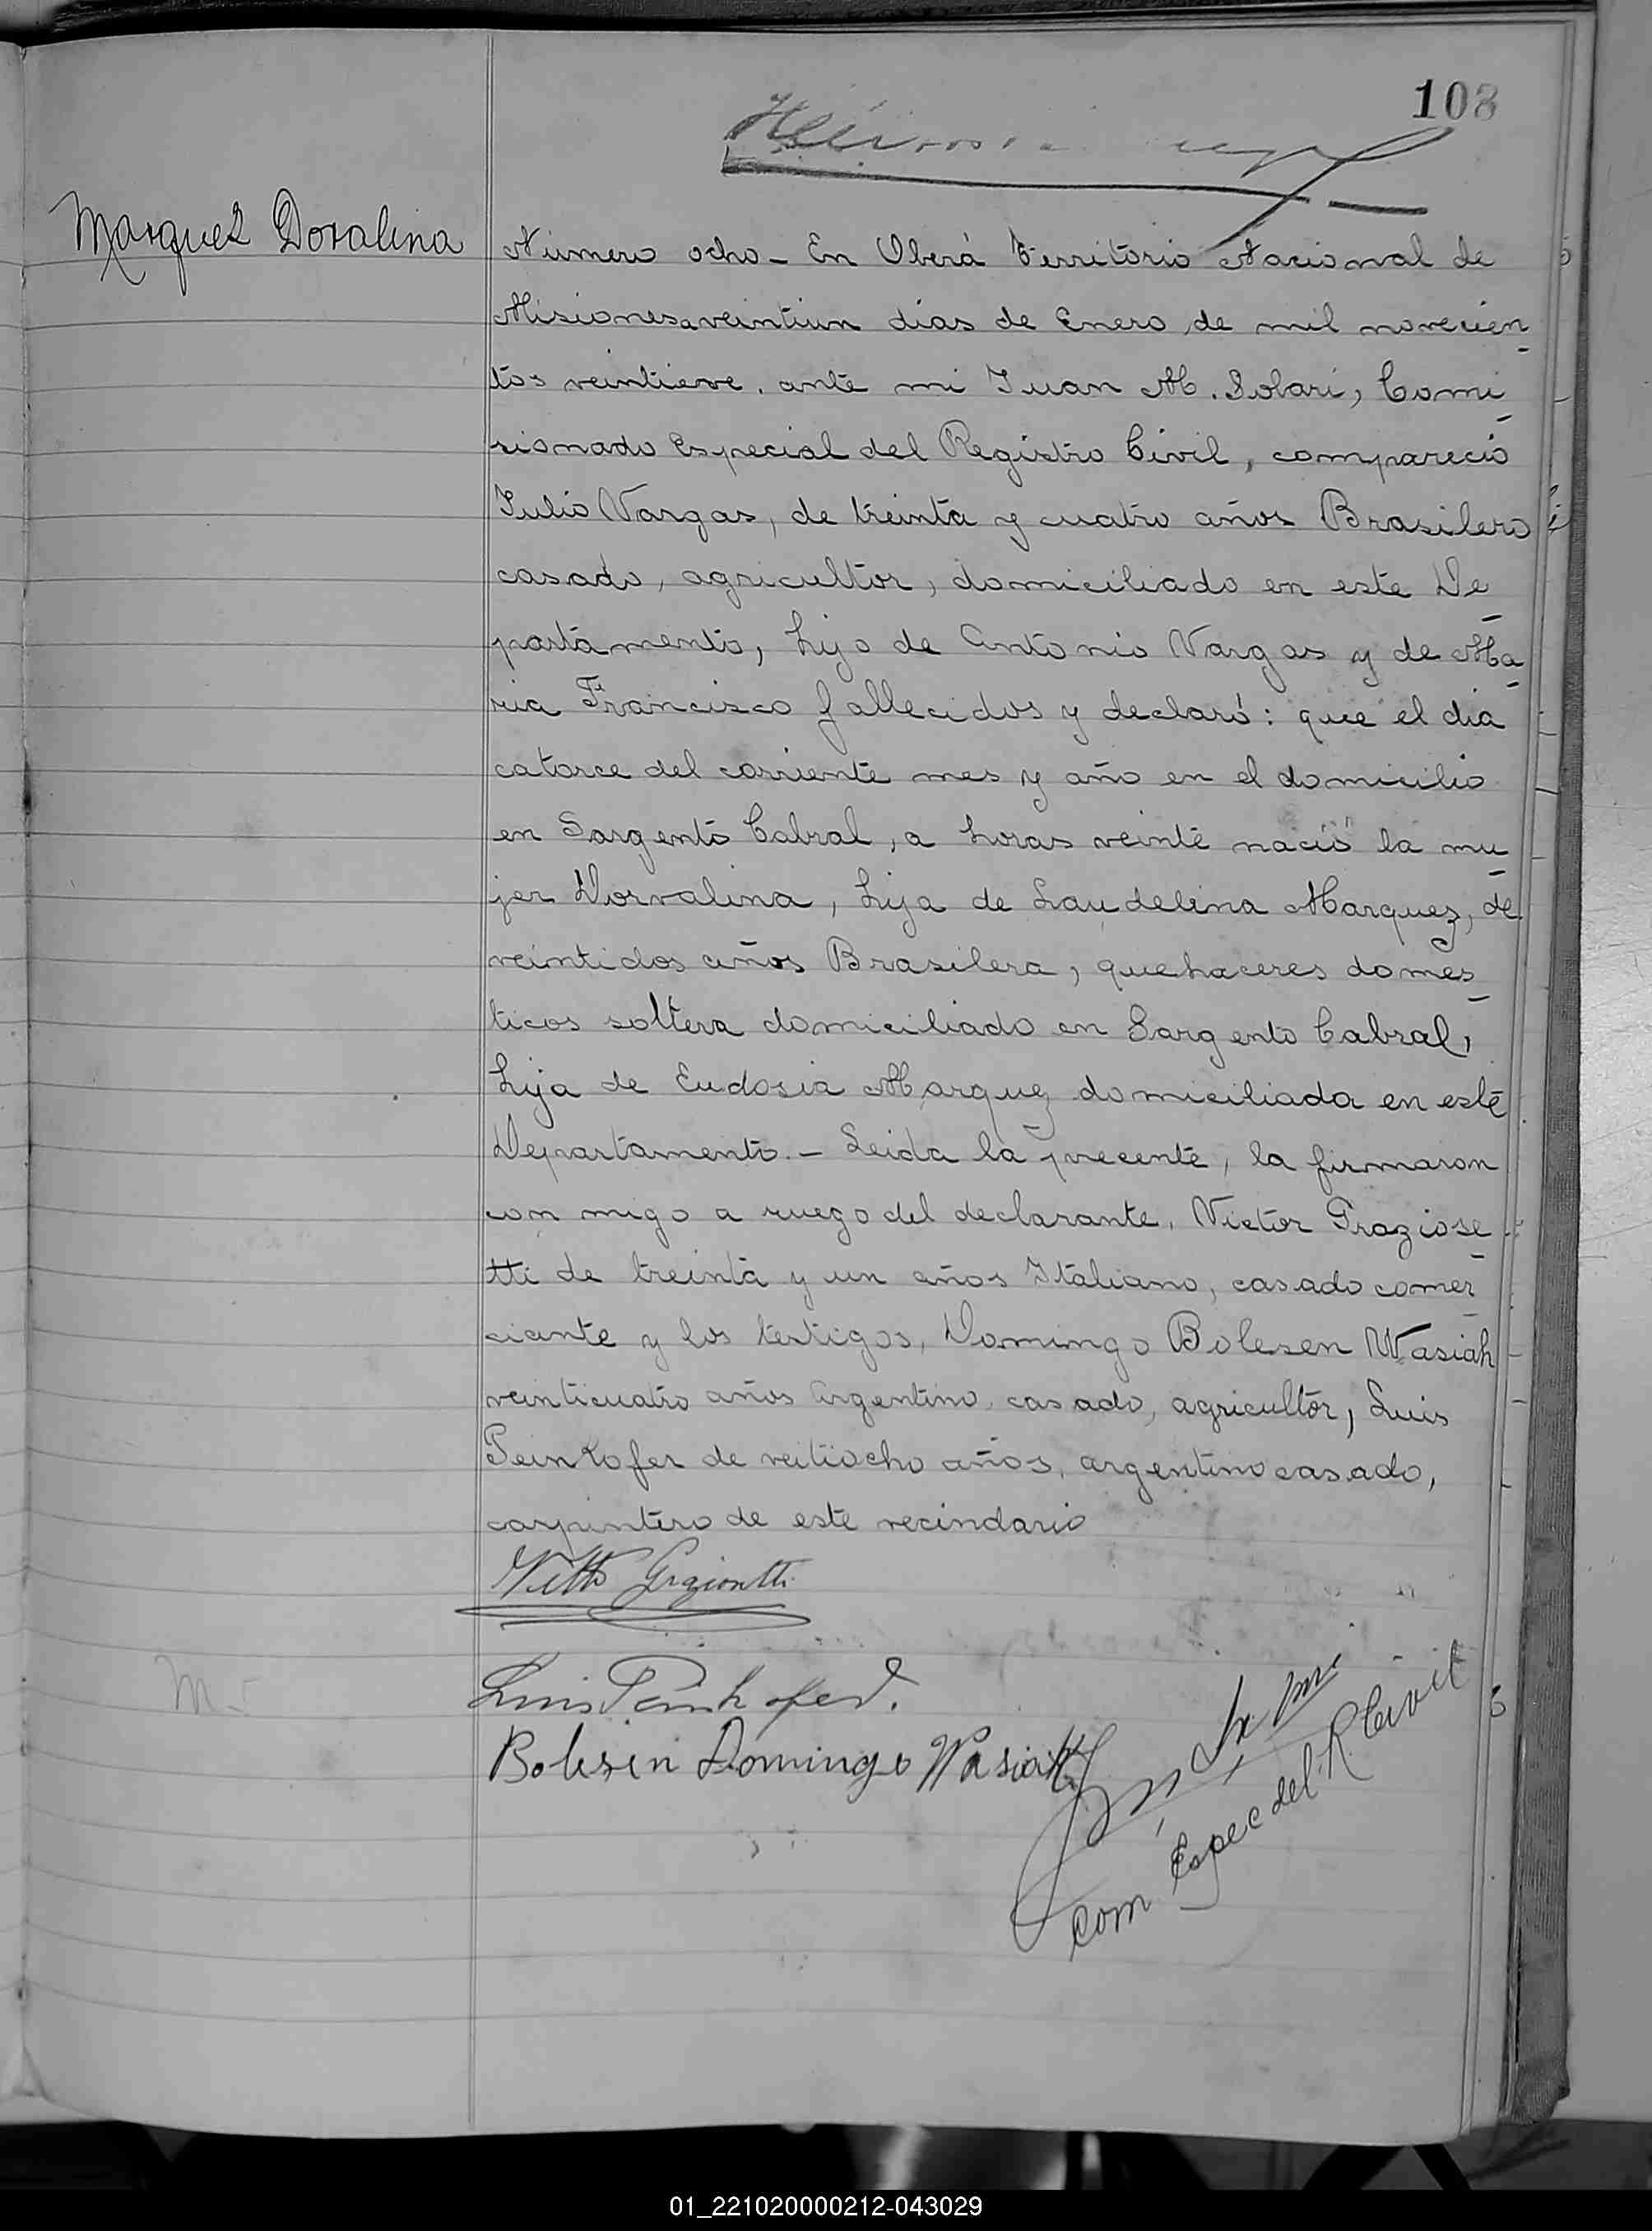 108
Marquez Doralina
Número ocho - En Oberá Territorio Nacional de
Misiones a veintiun dias de Enero de mil novecien
tos veintieve. ante mi Juan M. Solari, Comi
sionado Especial del Registro Civil, compareció
Julio Vargas, de treinta y cuatro años Brasilero
casado, agricultor, domiciliado en este De
partamento, hijo de Antonio Vargas y de Ma
ria Francisco fallecidos y declaró: que el dia
catorce del corriente mes y año en el domicilio
en Sargento Cabral, a horas veinte nació la mu
jer Dorvalina, hija de Laudelina Marquez, de
veintidos años Brasilera, quehaceres domes
ticos soltera domiciliado en Sargento Cabral,
hija de Eudosia Marquez domiciliada en este
Departamento. - Leida la precente, la firmaron
con migo a ruego del declarante, Victor Graziose
tti de treinta y un años Italiano, casado comer
ciante y los testigos, Domingo Bolesen Wasiah
veinticuatro años argentino casado, agricultor, Luis
Peinkofer de veitiocho años, argentino casado,
carpintero de este vecindario
Luis Peinkofer.
Bolesin Domingo Wasiak
Com Espec del R. Civil
01_221020000212-043029